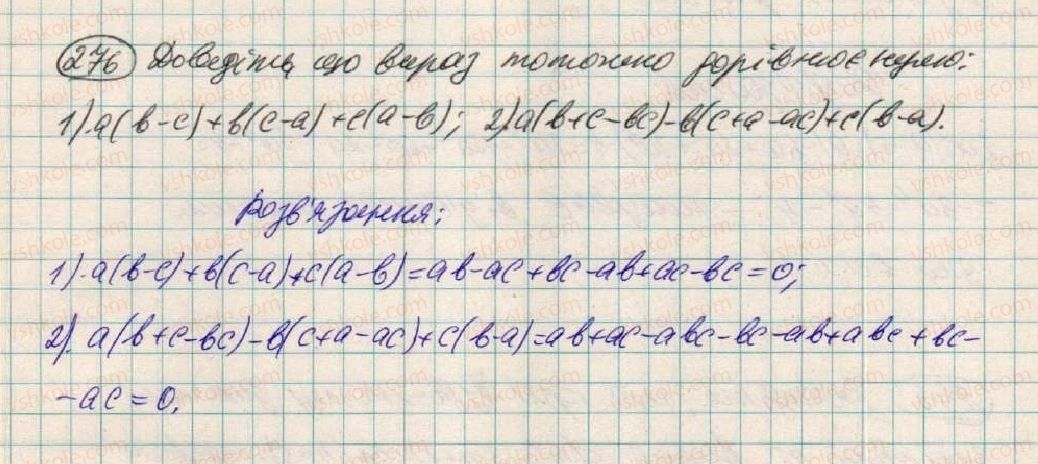 276 Доведіть, що вираз тотожно дорівнює нулю:
1) a(b-c)+b(c-a)+c(a-b); 2) a(b+c-bc)-b(c+a-ac)+c(b-a).
Розв'язання:
1). a(b-c)+b(c-a)+c(a-b)=ab-ac+bc-ab+ac-bc=0;
2). a(b+c-bc)-b(c+a-ac)+c(b-a)=ab+ac-abc-bc-ab+abc+bc-
-ac=0.